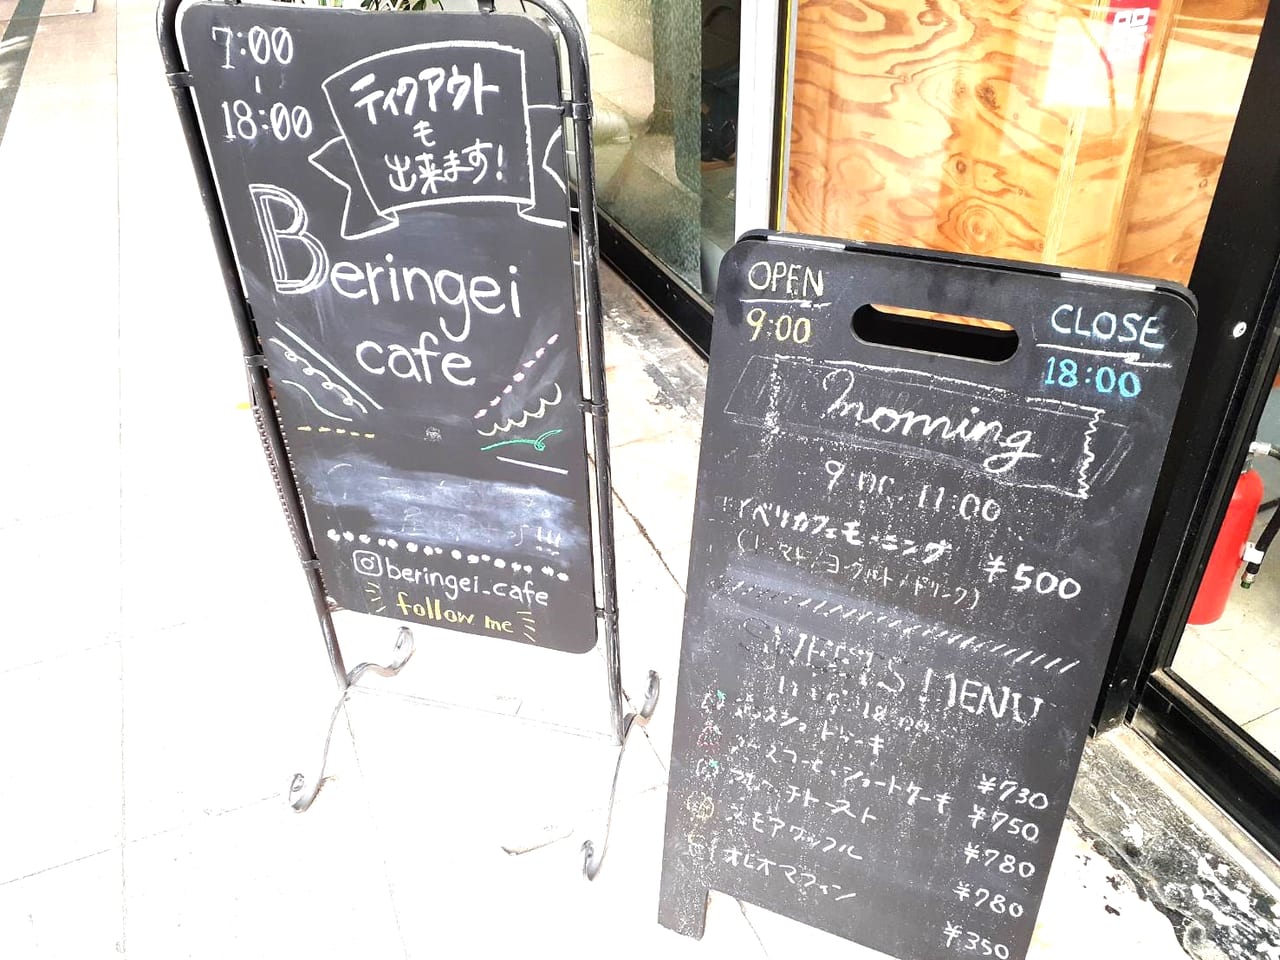 7:00
|
18:00
ティクアウト
も
出来ます!
Beringei
cafe
beringei_cafe
follow me
OPEN
9:00
CLOSE
18:00
morning
9:00 11:00
イベリカフェモーニング ¥500
ヨーグルト/ドリンク)
SWEETS MENU
18:00
¥730
ショートケーキ ¥750
トースト ¥780
スモアワッフル ¥780
オレオマフィン ¥350